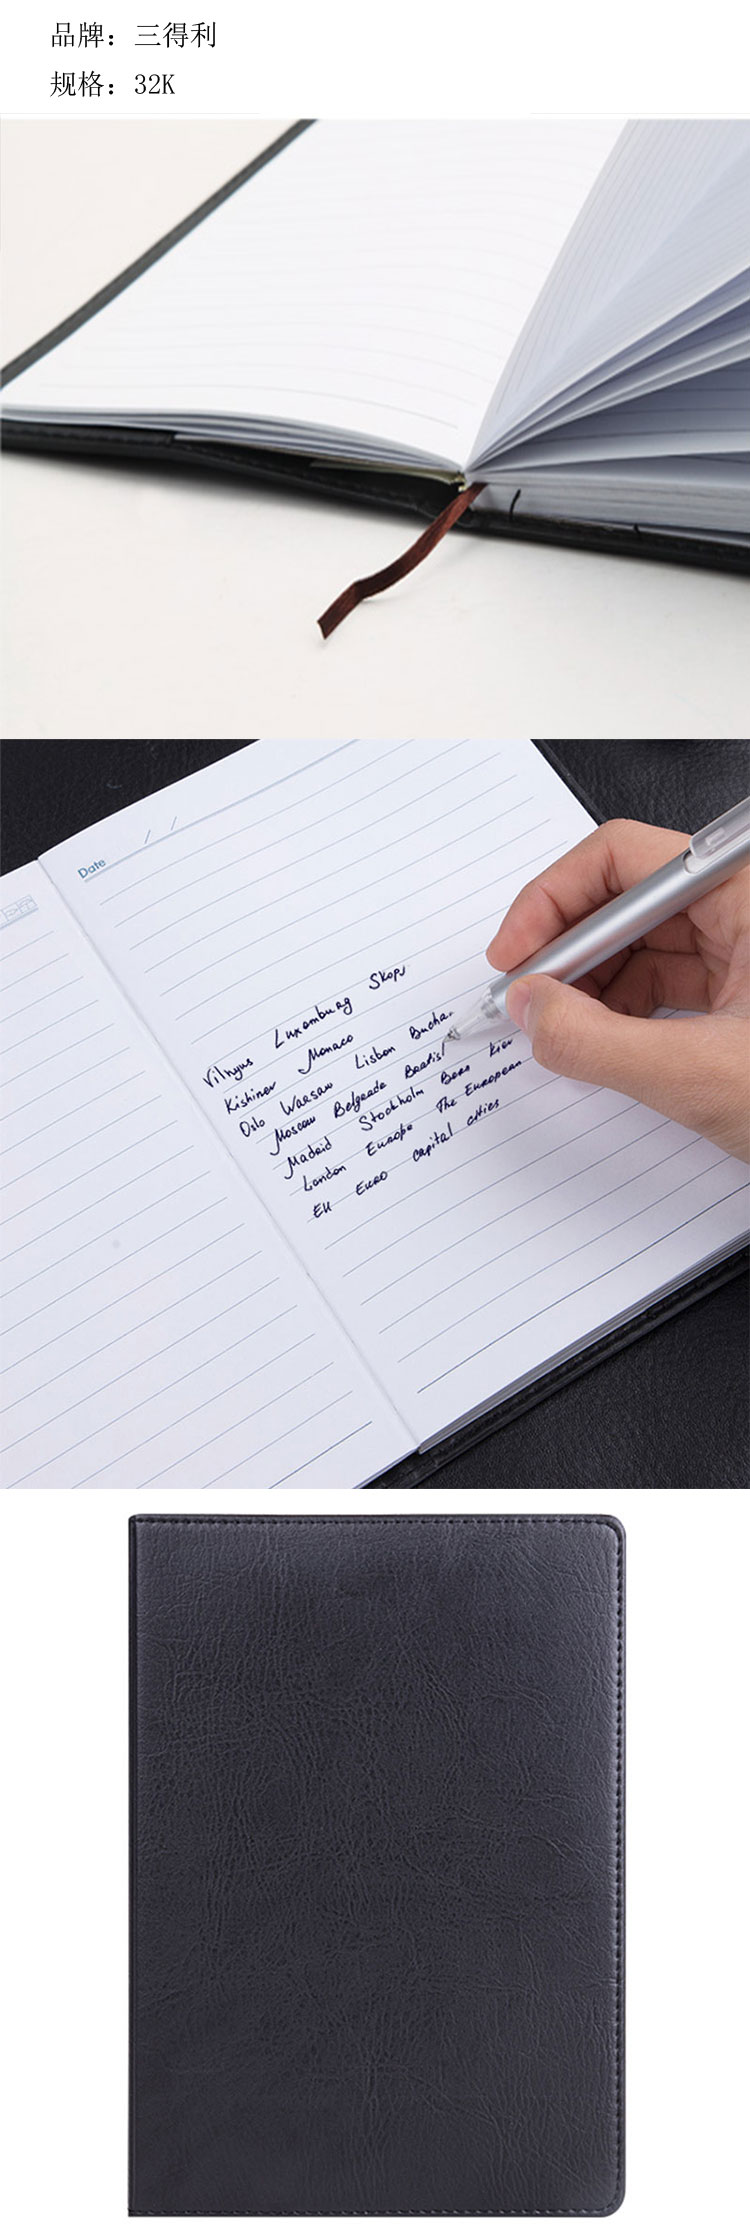 品牌：三得利
规格：32K
Date / /
Vilnyus Luxemburg Skopj
Kishinev Monaco
Oslo Warsaw Lisbon Bucha
Moscow Belgrade Bratisl
Madrid Stockholm Bern Kiev
London Europe The European
EU Euro capital cities